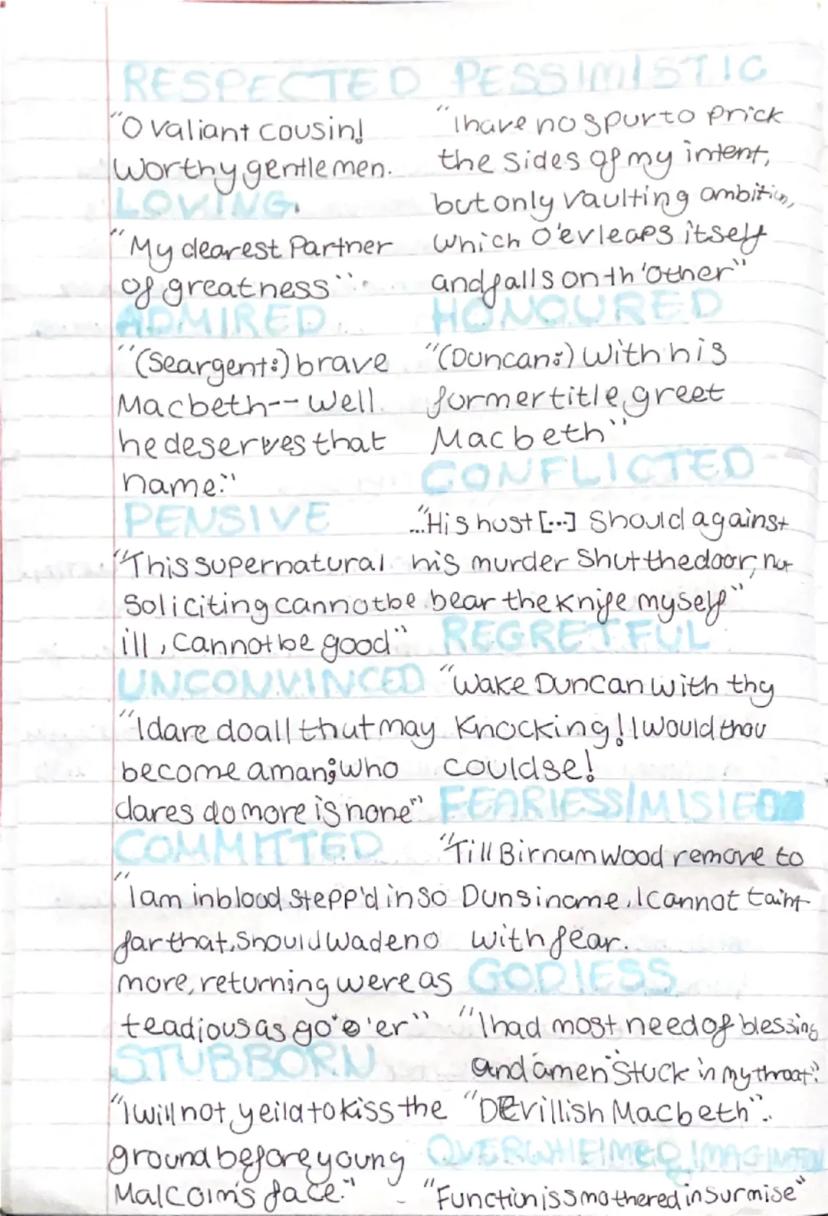 RESPECTED
"O valiant cousin!
Worthy gentlemen.
LOVING.
"My dearest Partner
of greatness".
ADMIRED
"(Seargent:) brave
Macbeth-- well
he deserves that
name."
PENSIVE
"This supernatural
Soliciting cannot be
ill, Cannot be good"
UNCONVINCED
"I dare do all that may
become a man; who
dares do more is none"
COMMITTED
"I am in blood stepp'd in so
far that, should wade no
more, returning were as
teadious as go'e'er"
STUBBORN
"I will not yeild to kiss the
ground before young
Malcolm's face."
PESSIMISTIC
"I have no spur to Prick
the sides of my intent,
but only vaulting ambition,
which O'evleaps itself
and falls on th'other"
HONOURED
"(Duncan:) With his
former title, greet
Macbeth"
CONFLICTED
..."His host [...] Should against
his murder Shut the door, not
bear the knife myself"
REGRETFUL
"Wake Duncan with thy
Knocking! I would thou
couldse!
FEARlESS/MISlED
"Till Birnum Wood remove to
Dunsiname, I cannot taint
with fear.
GODlESS
"I had most need of blessing
and "amen" Stuck in my throat".
"DEvillish Macbeth".
OVERWHElMED IMAGINATION
"Function is smothered in surmise"